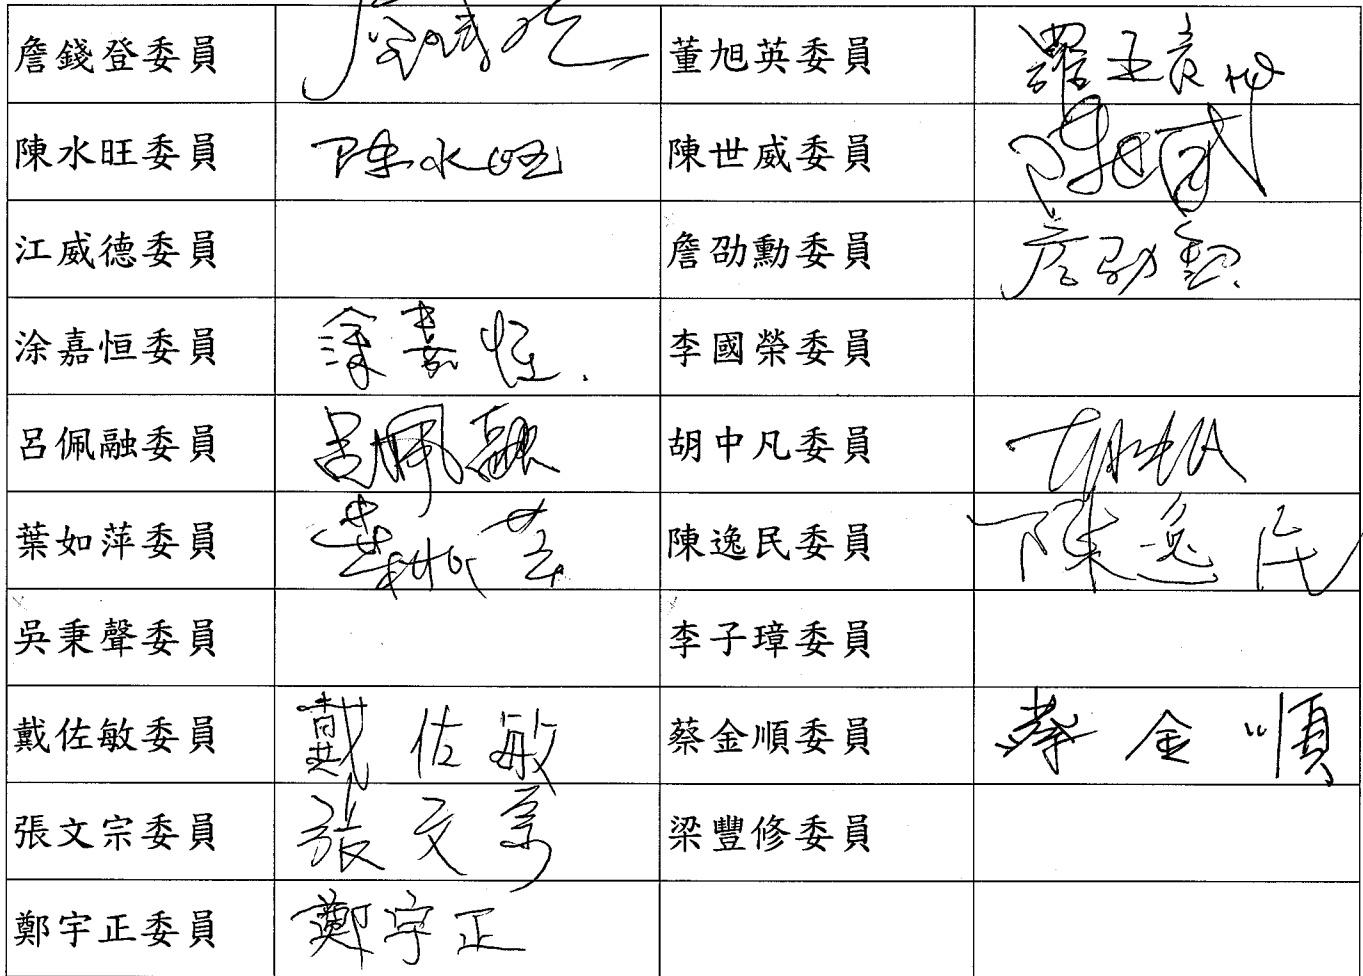 詹錢登委員 詹錢登 董旭英委員
陳水旺委員 陳水旺 陳世威委員 陳世威
江威德委員 詹劭勳委員 詹劭勳
涂嘉恒委員 涂嘉恒 李國榮委員
呂佩融委員 呂佩融 胡中凡委員 胡中凡
葉如萍委員 葉如萍 陳逸民委員 陳逸民
吳秉聲委員 李子璋委員
戴佐敏委員 戴佐敏 蔡金順委員 蔡金順
張文宗委員 張文宗 梁豐修委員
鄭宇正委員 鄭宇正